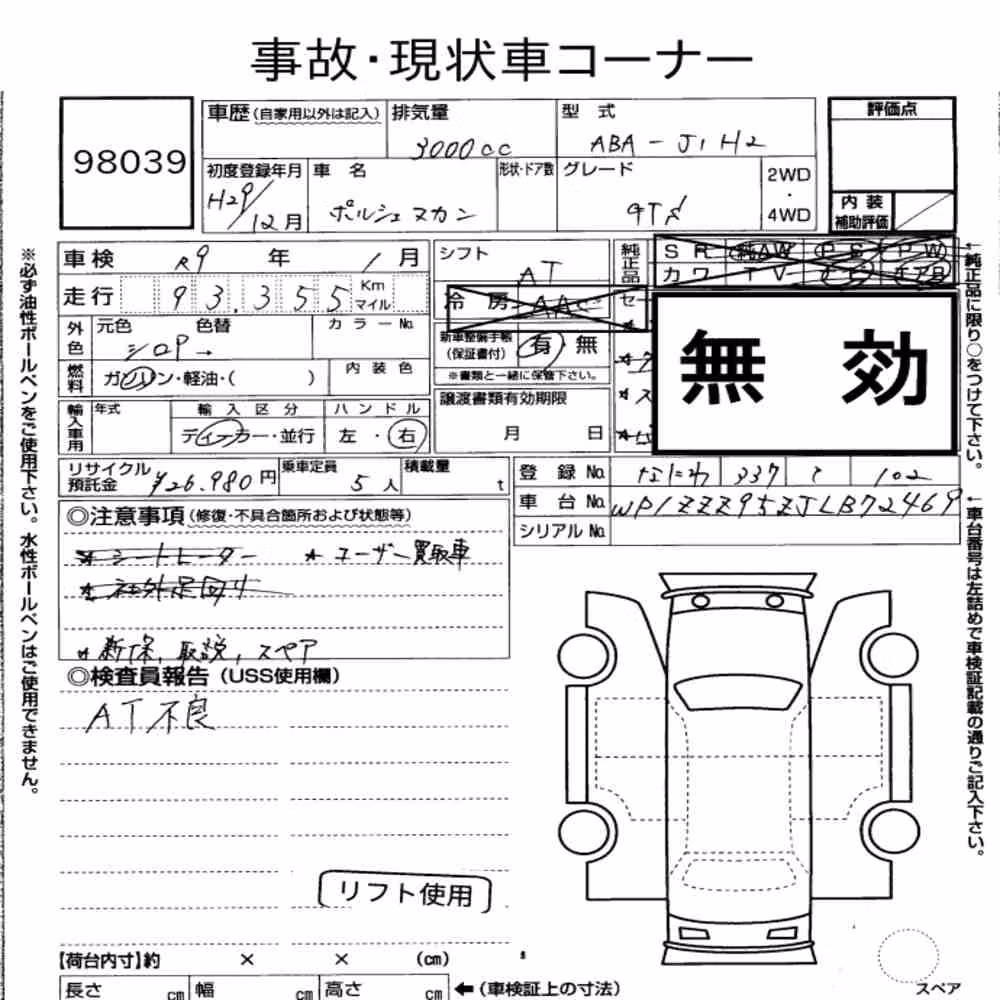 事故・現状車コーナー
98039
車歴(自家用以外は記入)
排気量
3000cc
型 式
ABA-J1H2
評価点
初度登録年月
H29/12月
車 名
ポルシェ マカン
形状・ドア数
グレード
GTS
2WD
・
4WD
内装
補助評価
車検 R9年 1月
走行 93,355 Km マイル
シフト
AT
冷房 AAC
純正品
SR 純AW PS PW
カワ TV ナビ エアB
セ
無 効
外色
元色 色替
シロP→
カラーNo.
燃料
ガソリン・軽油・( )
内装色
新車整備手帳
(保証書付)
有 無
※書類と一緒に保管下さい。
輸入車用
年式
輸入区分
ディーラー・並行
ハンドル
左・右
譲渡書類有効期限
月 日
リサイクル
預託金
¥26,980円
乗車定員
5人
積載量
t
登録No. なにわ 337 102
車台No. WP1ZZZ95ZJLB72469
シリアルNo.
◎注意事項(修復・不具合箇所および状態等)
★シートヒーター ★ユーザー買取車
★社外足回り
★新保、取説、スペア
◎検査員報告(USS使用欄)
AT不良
リフト使用
【荷台内寸】約 × × (cm)
長さ cm 幅 cm 高さ cm ←(車検証上の寸法)
スペア
※必ず油性ボールペンをご使用下さい。水性ボールペンはご使用できません。
←純正品に限り○をつけて下さい。
←車台番号は左詰めで車検証記載の通りご記入下さい。